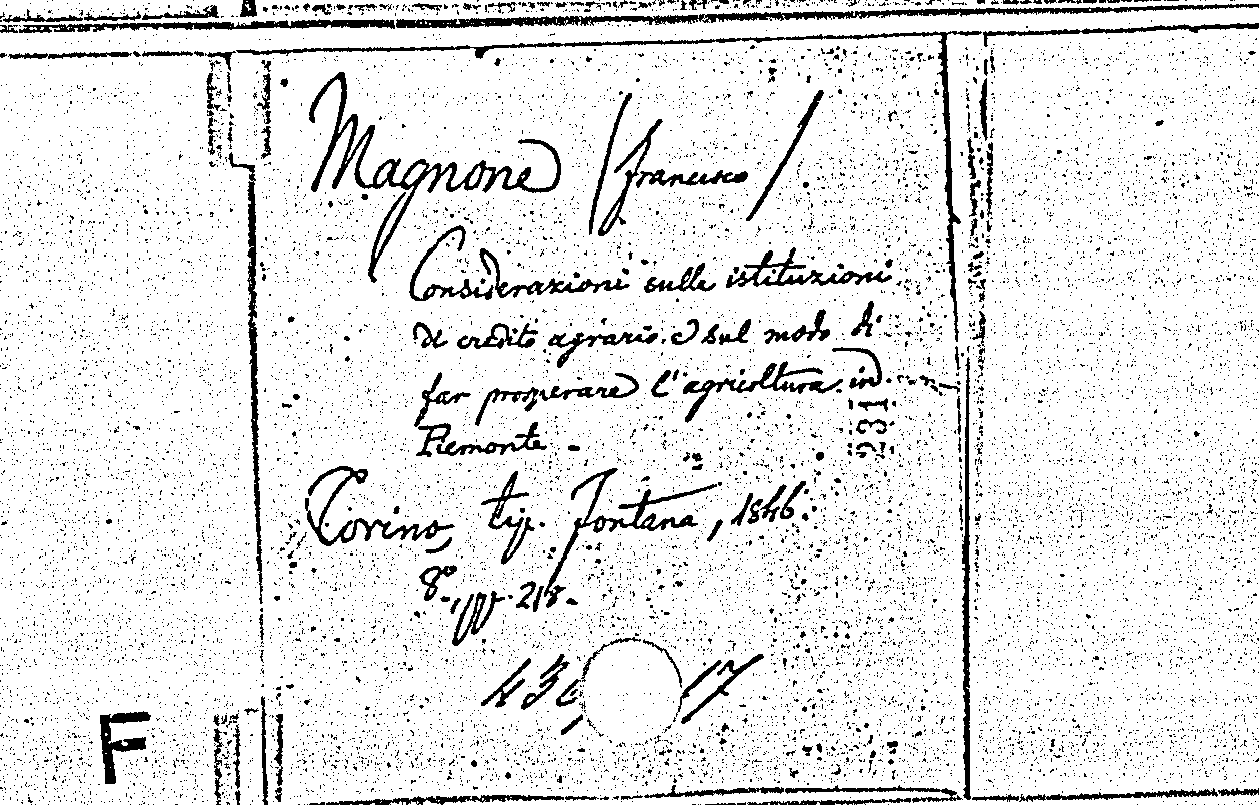 Magnone (Francesco).
Considerazioni sulle istituzioni
di credito agrario e sul modo di
far prosperare l'agricoltura in
Piemonte -
Torino, tip. Fontana, 1846.
8°, pp. 218.
17
231
F